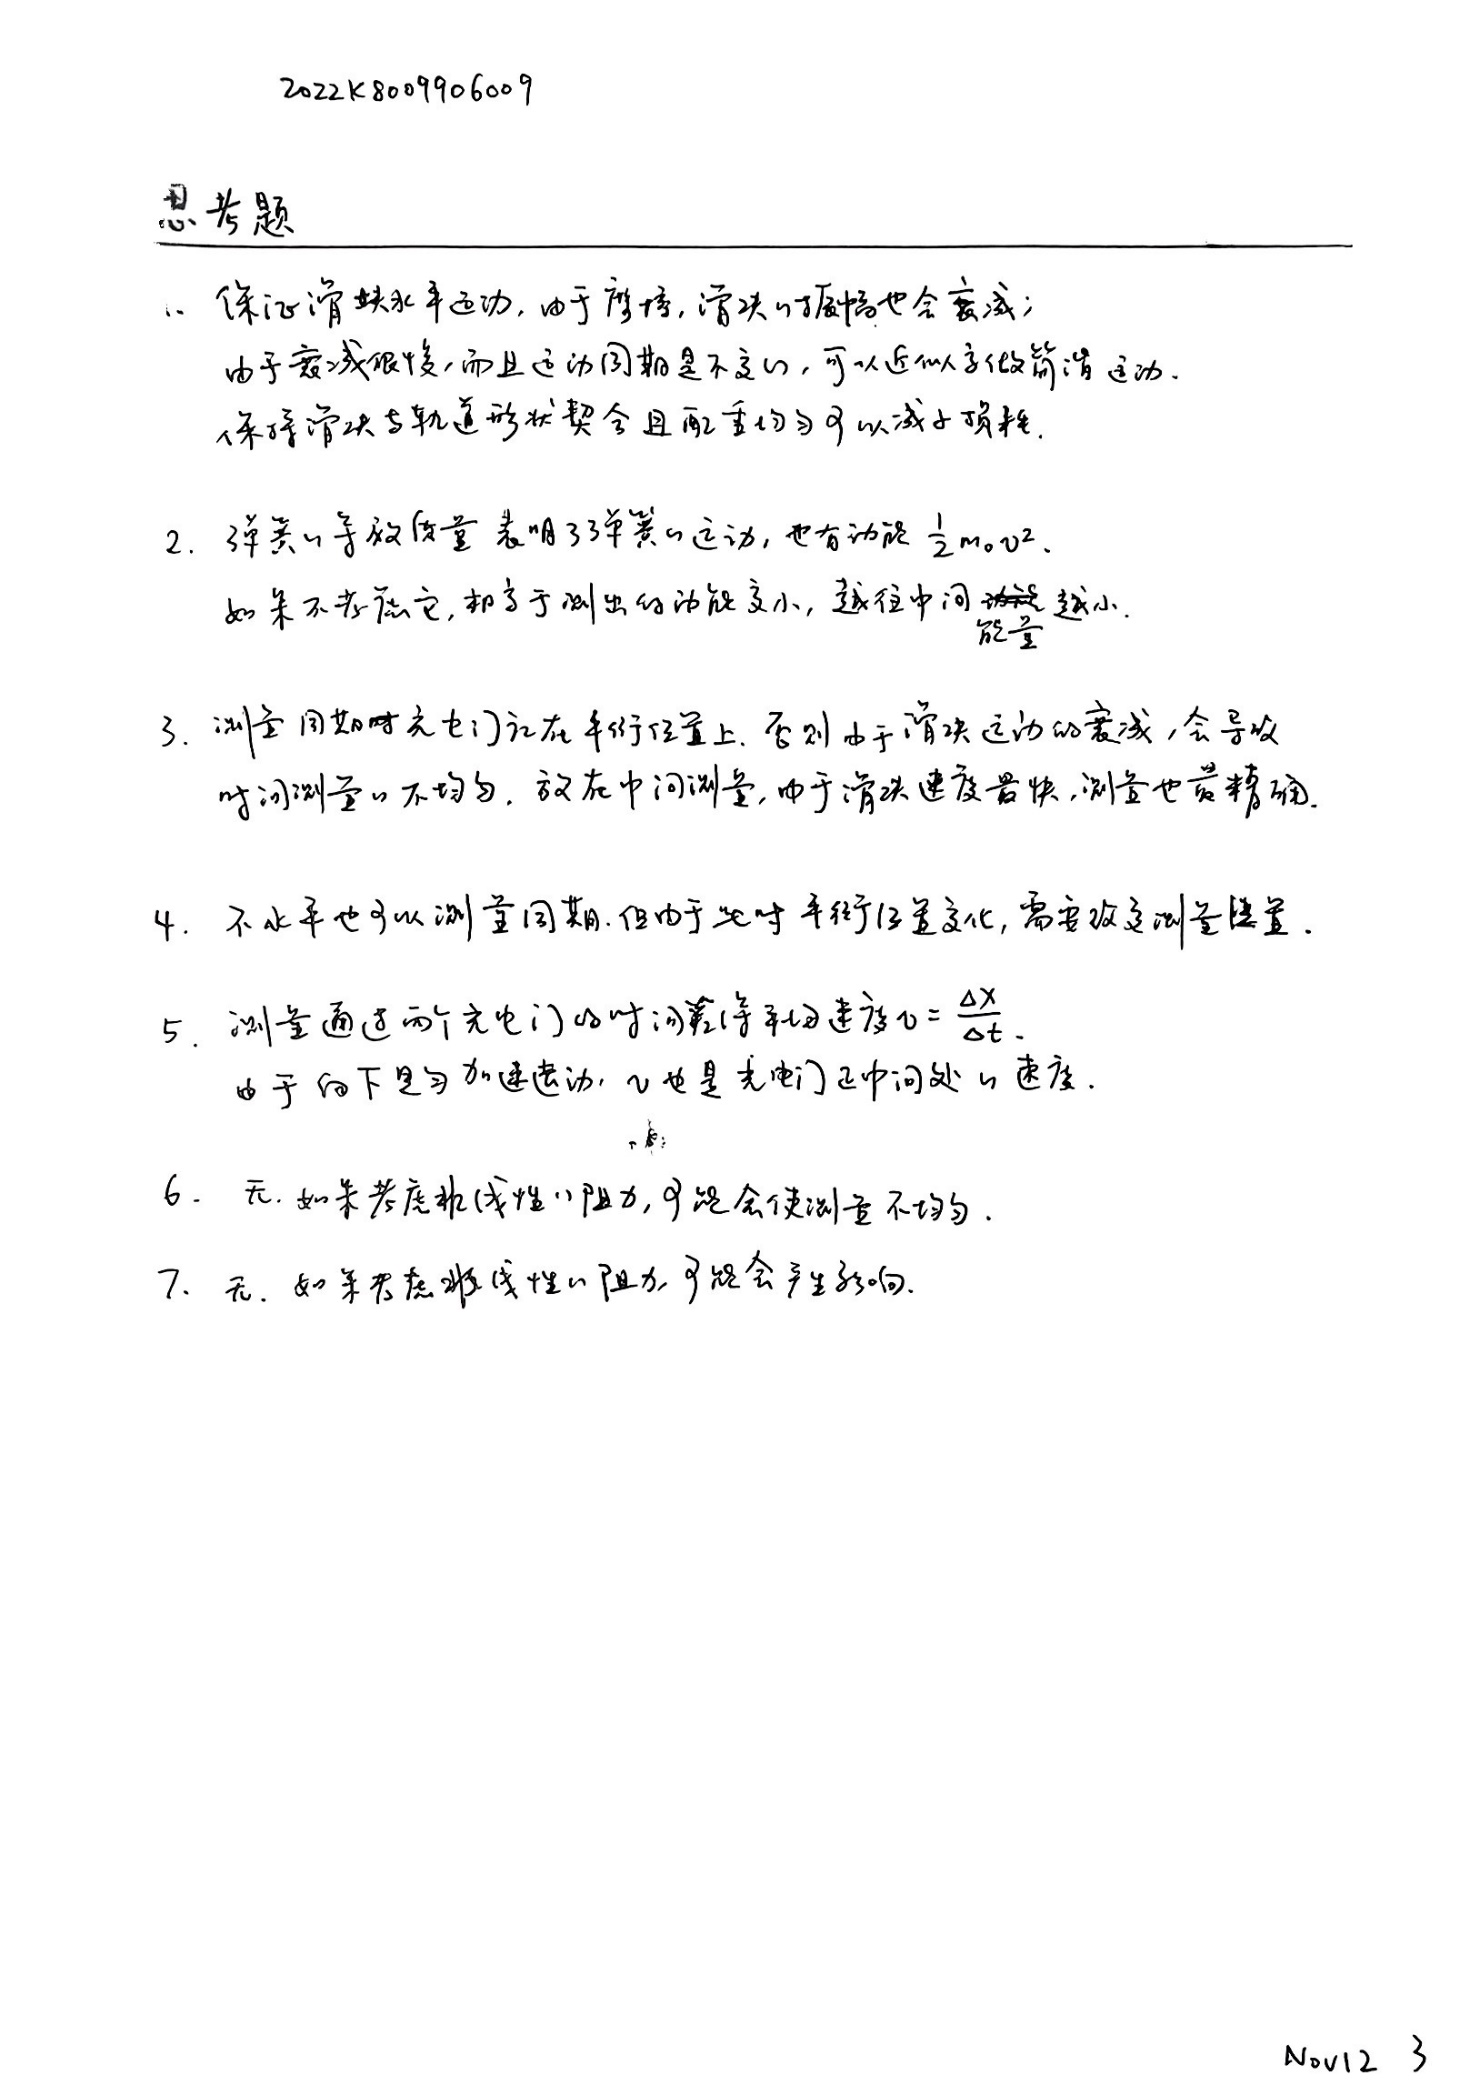 2022K8009906009
思考题
1. 保证滑块水平运动,由于摩擦,滑块的振幅也会衰减;
由于衰减很慢,而且运动周期是不变的,可以近似为做简谐运动.
保持滑块与轨道形状契合且配重均匀可以减少损耗.
2. 弹簧的等效质量表明了弹簧的运动,也有动能 1/2 m₀v².
如果不考虑它,相当于测出的动能变小,越往中间能量越小.
3. 测量周期时光电门放在平衡位置上.否则由于滑块运动的衰减,会导致
时间测量的不均匀.放在中间测量,由于滑块速度最快,测量也最精确.
4. 不水平也可以测量周期.但由于此时平衡位置变化,需要改变测量位置.
5. 测量通过两个光电门的时间差得平均速度 v = Δx/Δt.
由于向下是匀加速运动,v也是光电门正中间处的速度.
6. 无.如果考虑非线性的阻力,可能会使测量不均匀.
7. 无.如果考虑非线性的阻力,可能会产生影响.
Nov12 3